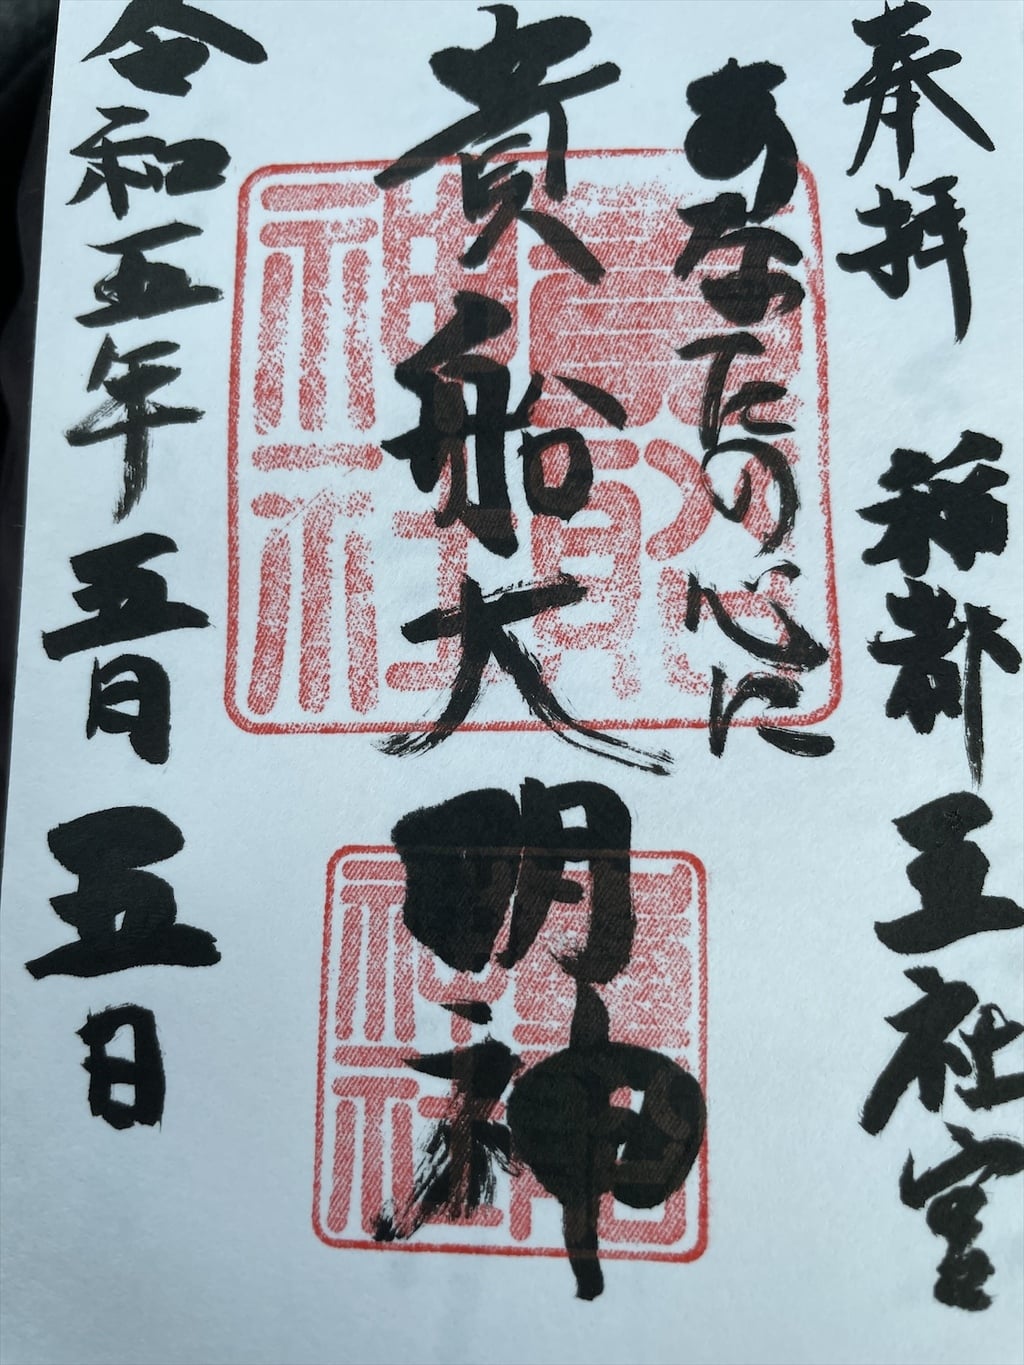 奉拝 都 社宮
あなたの心に
貴船大明神
令和五年五月五日